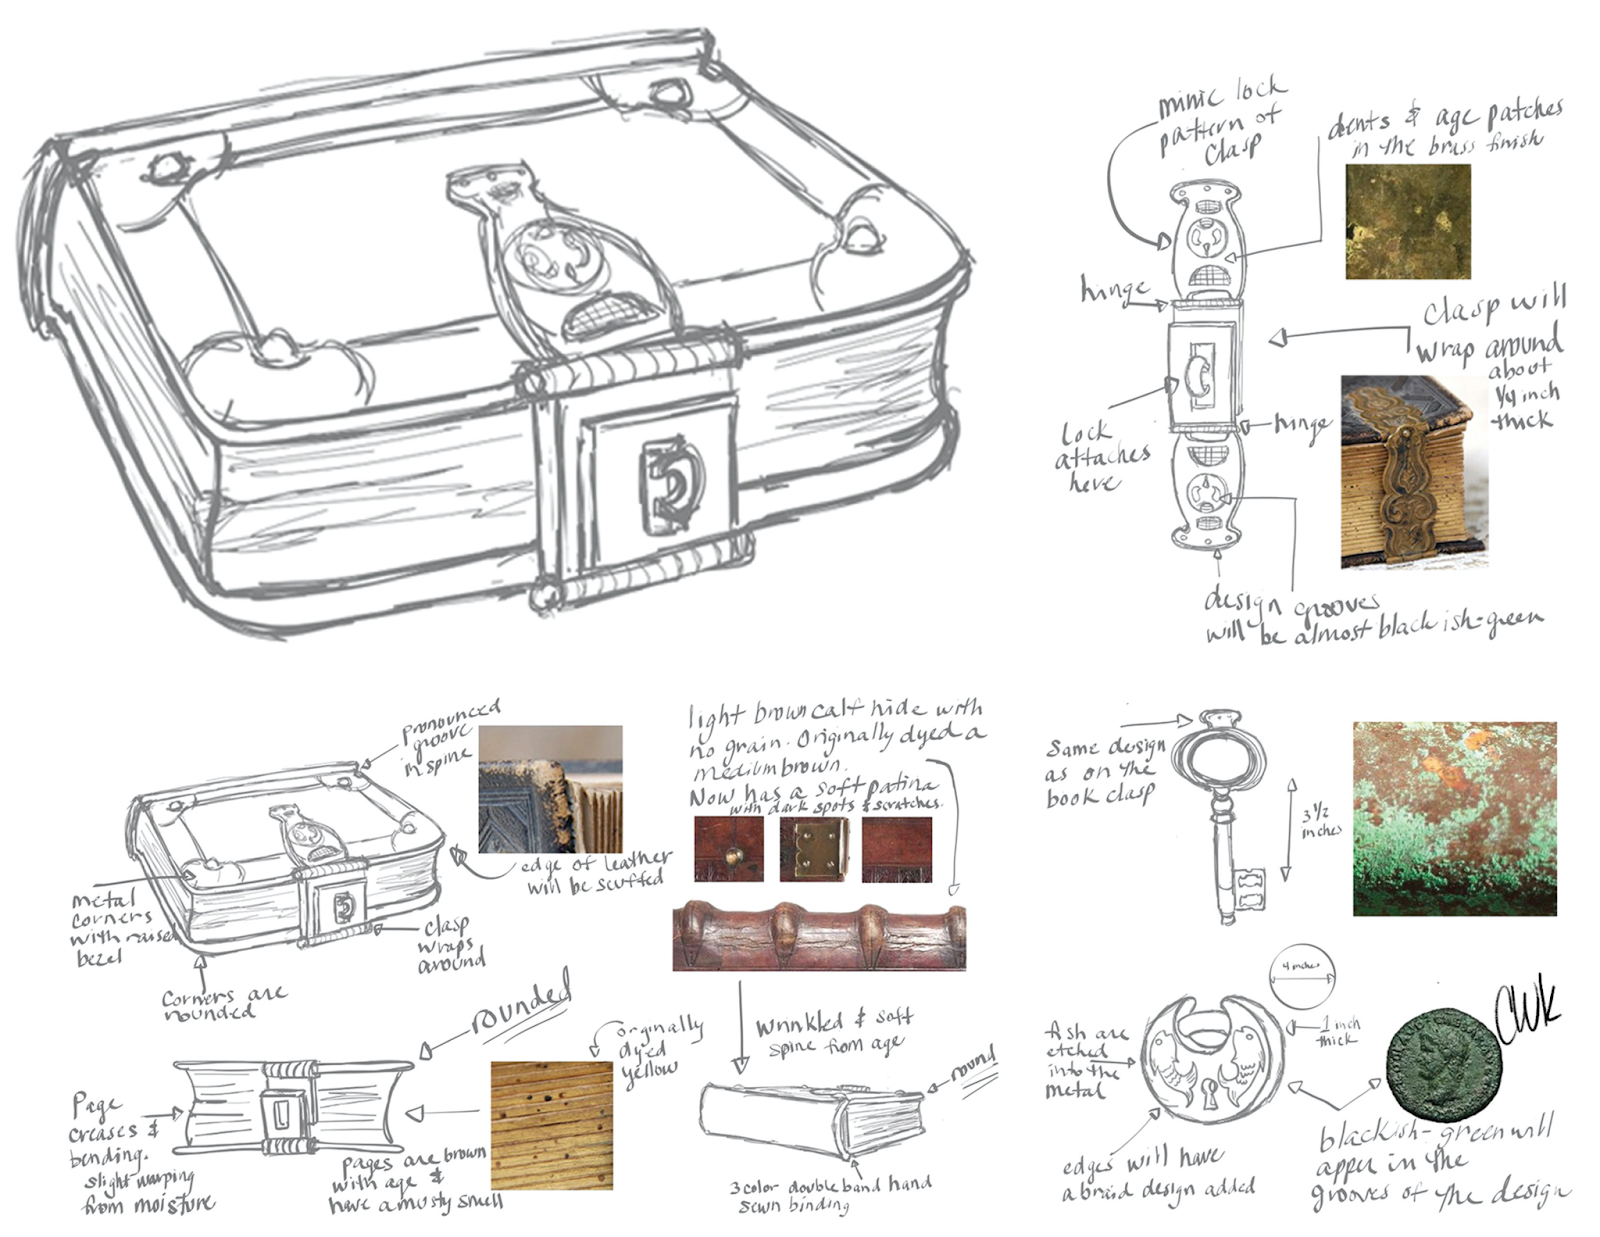 mimic lock
pattern of
clasp
dents & age patches
in the brass finish
hinge
clasp will
wrap around
about
1/4 inch
thick
lock
attaches
here
hinge
design grooves
will be almost blackish-green
pronounced
groove
in spine
edge of leather
will be scuffed
metal
corners
with raised
bezel
clasp
wraps
around
corners are
rounded
light brown calf hide with
no grain. Originally dyed a
medium brown.
Now has a soft patina
with dark spots & scratches.
wrinkled & soft
spine from age
round
3 color double band hand
sewn binding
rounded
orginally
dyed
yellow
Page
creases &
bending.
slight warping
from moisture
pages are brown
with age &
have a musty smell
Same design
as on the
book clasp
3 1/2
inches
4 inches
1 inch
thick
fish are
etched
into the
metal
edges will have
a braid design added
CWK
blackish-green will
apper in the
grooves of the design